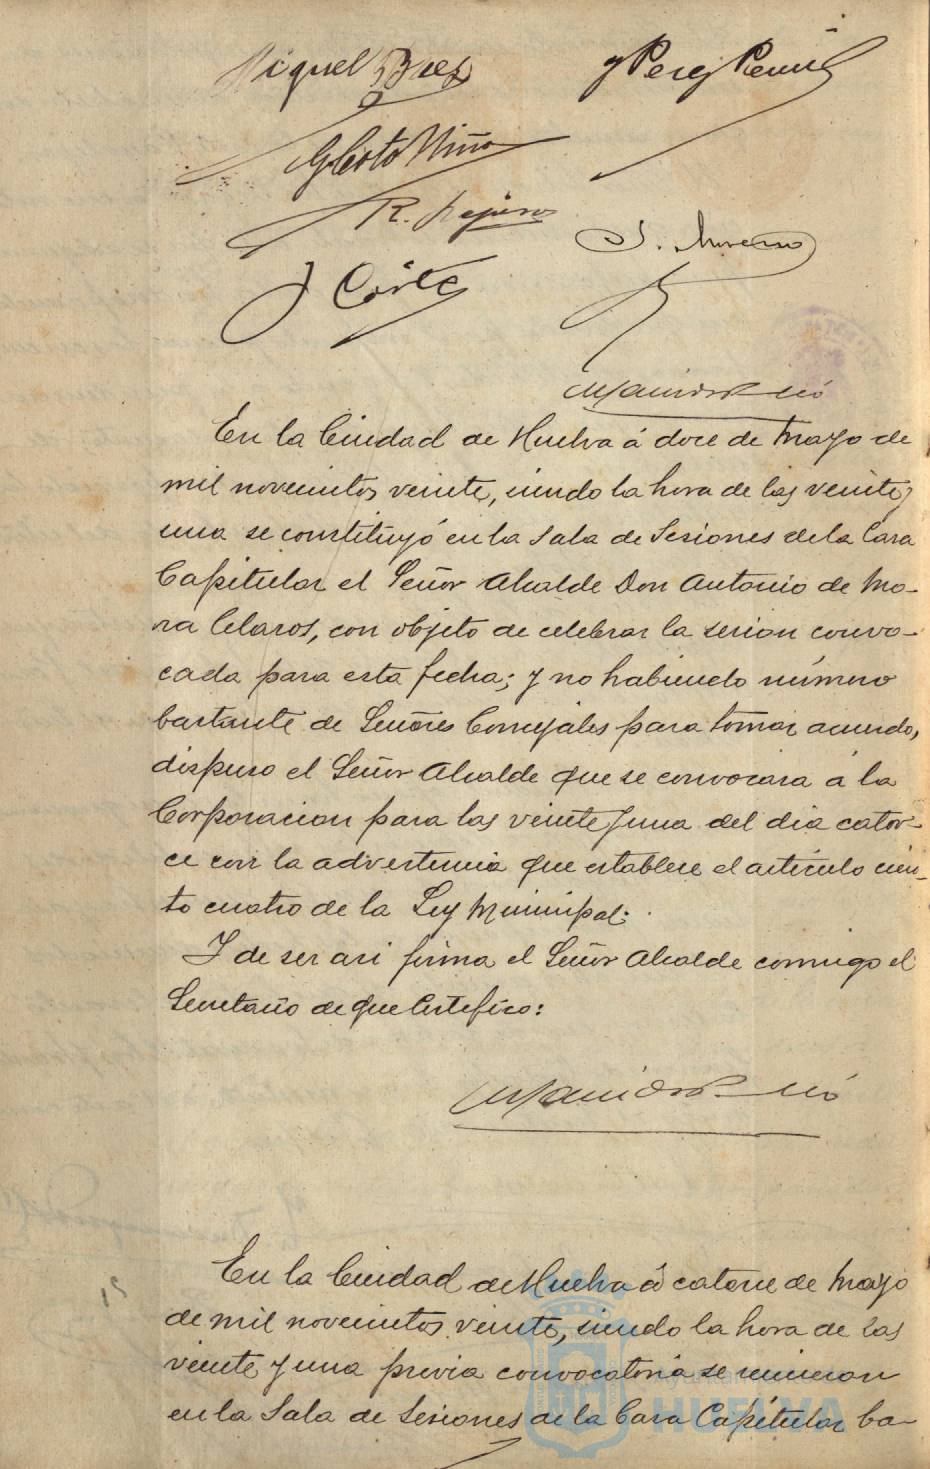 Miguel Baez
y Perez
Niño
R.
J. Moreno
J Corte
En la Ciudad de Huelva á doce de Mayo de
mil novecientos veinte, siendo la hora de las veinte y
una se constituyó en la Sala de Sesiones de la Casa
Capitular el Señor Alcalde Don Antonio de Mo-
ra Claros, con objeto de celebrar la sesion convo-
cada para esta fecha; y no habiendo número
bastante de Señores Concejales para tomar acuerdo,
dispuso el Señor Alcalde que se convocara á la
Corporacion para las veinte y una del dia cator-
ce con la advertencia que establece el artículo cien-
to cuatro de la Ley Municipal.
Y de ser asi firma el Señor Alcalde conmigo el
Secretario de que Certifico:
En la Ciudad de Huelva á catorce de Mayo
de mil novecientos veinte, siendo la hora de las
veinte y una previa convocatoria se reunieron
en la Sala de Sesiones de la Casa Capitular ba-
Ayuntamiento
HUELVA